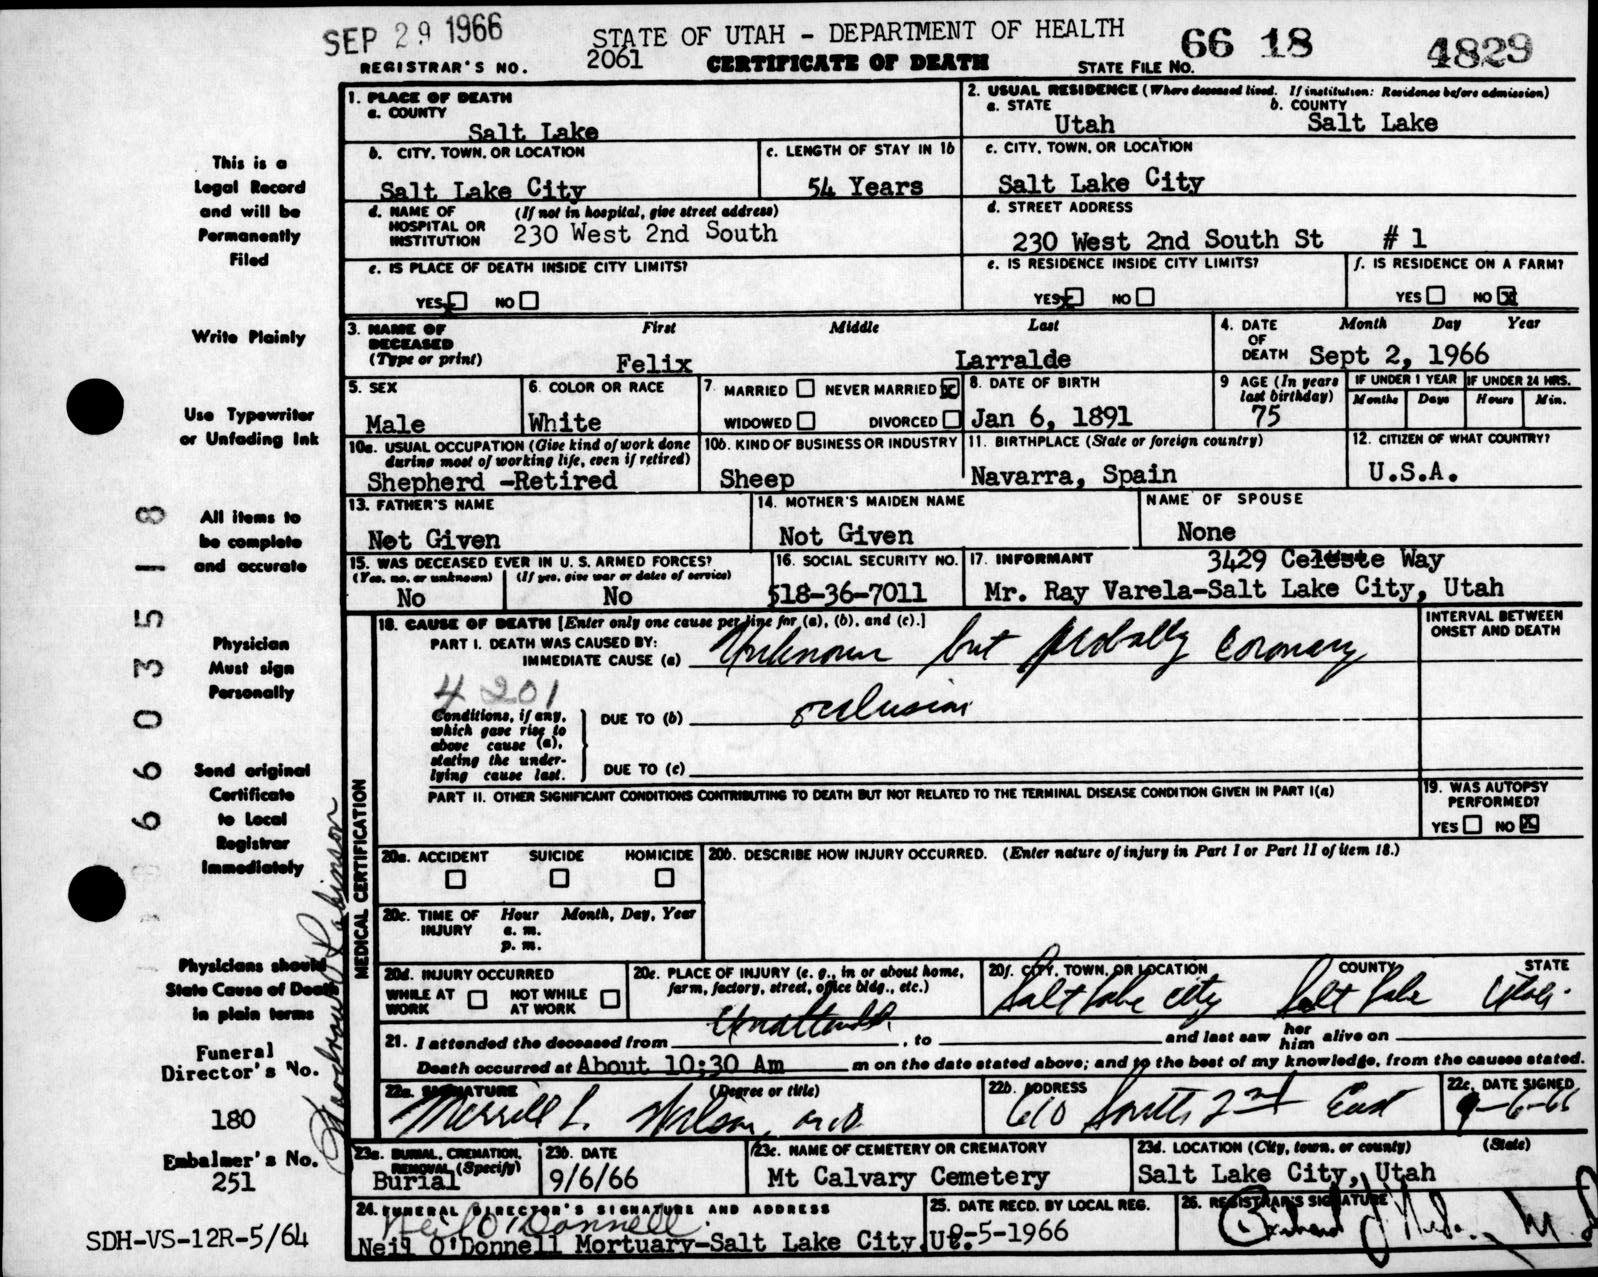 SEP 29 1966
STATE OF UTAH - DEPARTMENT OF HEALTH
66 18
4829
REGISTRAR'S NO. 2061
CERTIFICATE OF DEATH
STATE FILE NO.
This is a
Legal Record
and will be
Permanently
Filed
Write Plainly
Use Typewriter
or Unfading Ink
All items to
be complete
and accurate
Physician
Must sign
Personally
Send original
Certificate
to Local
Registrar
Immediately
Physicians should
State Cause of Death
in plain terms
Funeral
Director's No.
180
Embalmer's No.
251
SDH-VS-12R-5/64
6603518
Woodrow Robinson
1. PLACE OF DEATH
a. COUNTY
Salt Lake
2. USUAL RESIDENCE (Where deceased lived. If institution: Residence before admission)
a. STATE b. COUNTY
Utah Salt Lake
b. CITY, TOWN, OR LOCATION
Salt Lake City
c. LENGTH OF STAY IN 1b
54 Years
c. CITY, TOWN, OR LOCATION
Salt Lake City
d. NAME OF HOSPITAL OR INSTITUTION
(If not in hospital, give street address)
230 West 2nd South
d. STREET ADDRESS
230 West 2nd South St # 1
e. IS PLACE OF DEATH INSIDE CITY LIMITS?
YES x NO
e. IS RESIDENCE INSIDE CITY LIMITS?
YES x NO
f. IS RESIDENCE ON A FARM?
YES NO x
3. NAME OF DECEASED
(Type or print)
First Middle Last
Felix Larralde
4. DATE OF DEATH
Month Day Year
Sept 2, 1966
5. SEX
Male
6. COLOR OR RACE
White
7. MARRIED NEVER MARRIED x
WIDOWED DIVORCED
8. DATE OF BIRTH
Jan 6, 1891
9 AGE (In years last birthday)
75
IF UNDER 1 YEAR
Months Days
IF UNDER 24 HRS.
Hours Min.
10a. USUAL OCCUPATION (Give kind of work done during most of working life, even if retired)
Shepherd -Retired
10b. KIND OF BUSINESS OR INDUSTRY
Sheep
11. BIRTHPLACE (State or foreign country)
Navarra, Spain
12. CITIZEN OF WHAT COUNTRY?
U.S.A.
13. FATHER'S NAME
Not Given
14. MOTHER'S MAIDEN NAME
Not Given
NAME OF SPOUSE
None
15. WAS DECEASED EVER IN U. S. ARMED FORCES?
(Yes, no, or unknown) (If yes, give war or dates of service)
No No
16. SOCIAL SECURITY NO.
518-36-7011
17. INFORMANT
3429 Celeste Way
Mr. Ray Varela-Salt Lake City, Utah
MEDICAL CERTIFICATION
18. CAUSE OF DEATH [Enter only one cause per line for (a), (b), and (c).]
PART I. DEATH WAS CAUSED BY:
IMMEDIATE CAUSE (a) Unknown but probably coronary
INTERVAL BETWEEN ONSET AND DEATH
4201
Conditions, if any, which gave rise to above cause (a), stating the underlying cause last.
DUE TO (b) occlusion
DUE TO (c)
PART II. OTHER SIGNIFICANT CONDITIONS CONTRIBUTING TO DEATH BUT NOT RELATED TO THE TERMINAL DISEASE CONDITION GIVEN IN PART I(a)
19. WAS AUTOPSY PERFORMED?
YES NO x
20a. ACCIDENT SUICIDE HOMICIDE
20b. DESCRIBE HOW INJURY OCCURRED. (Enter nature of injury in Part I or Part II of item 18.)
20c. TIME OF INJURY
Hour Month, Day, Year
a. m.
p. m.
20d. INJURY OCCURRED
WHILE AT WORK NOT WHILE AT WORK
20e. PLACE OF INJURY (e. g., in or about home, farm, factory, street, office bldg., etc.)
20f. CITY, TOWN, OR LOCATION COUNTY STATE
Salt Lake City Salt Lake Utah.
21. I attended the deceased from Unattended, to and last saw her him alive on
Death occurred at About 10:30 Am m on the date stated above; and to the best of my knowledge, from the causes stated.
22a. SIGNATURE (Degree or title)
Merrill L. Wilson, M.D.
22b. ADDRESS
610 South 2nd East
22c. DATE SIGNED
9-6-66
23a. BURIAL, CREMATION, REMOVAL (Specify)
Burial
23b. DATE
9/6/66
23c. NAME OF CEMETERY OR CREMATORY
Mt Calvary Cemetery
23d. LOCATION (City, town, or county) (State)
Salt Lake City, Utah
24. FUNERAL DIRECTOR'S SIGNATURE AND ADDRESS
Neil O'Donnell
Neil O'Donnell Mortuary-Salt Lake City,Ut.
25. DATE RECD. BY LOCAL REG.
9-5-1966
26. REGISTRAR'S SIGNATURE
M.D.